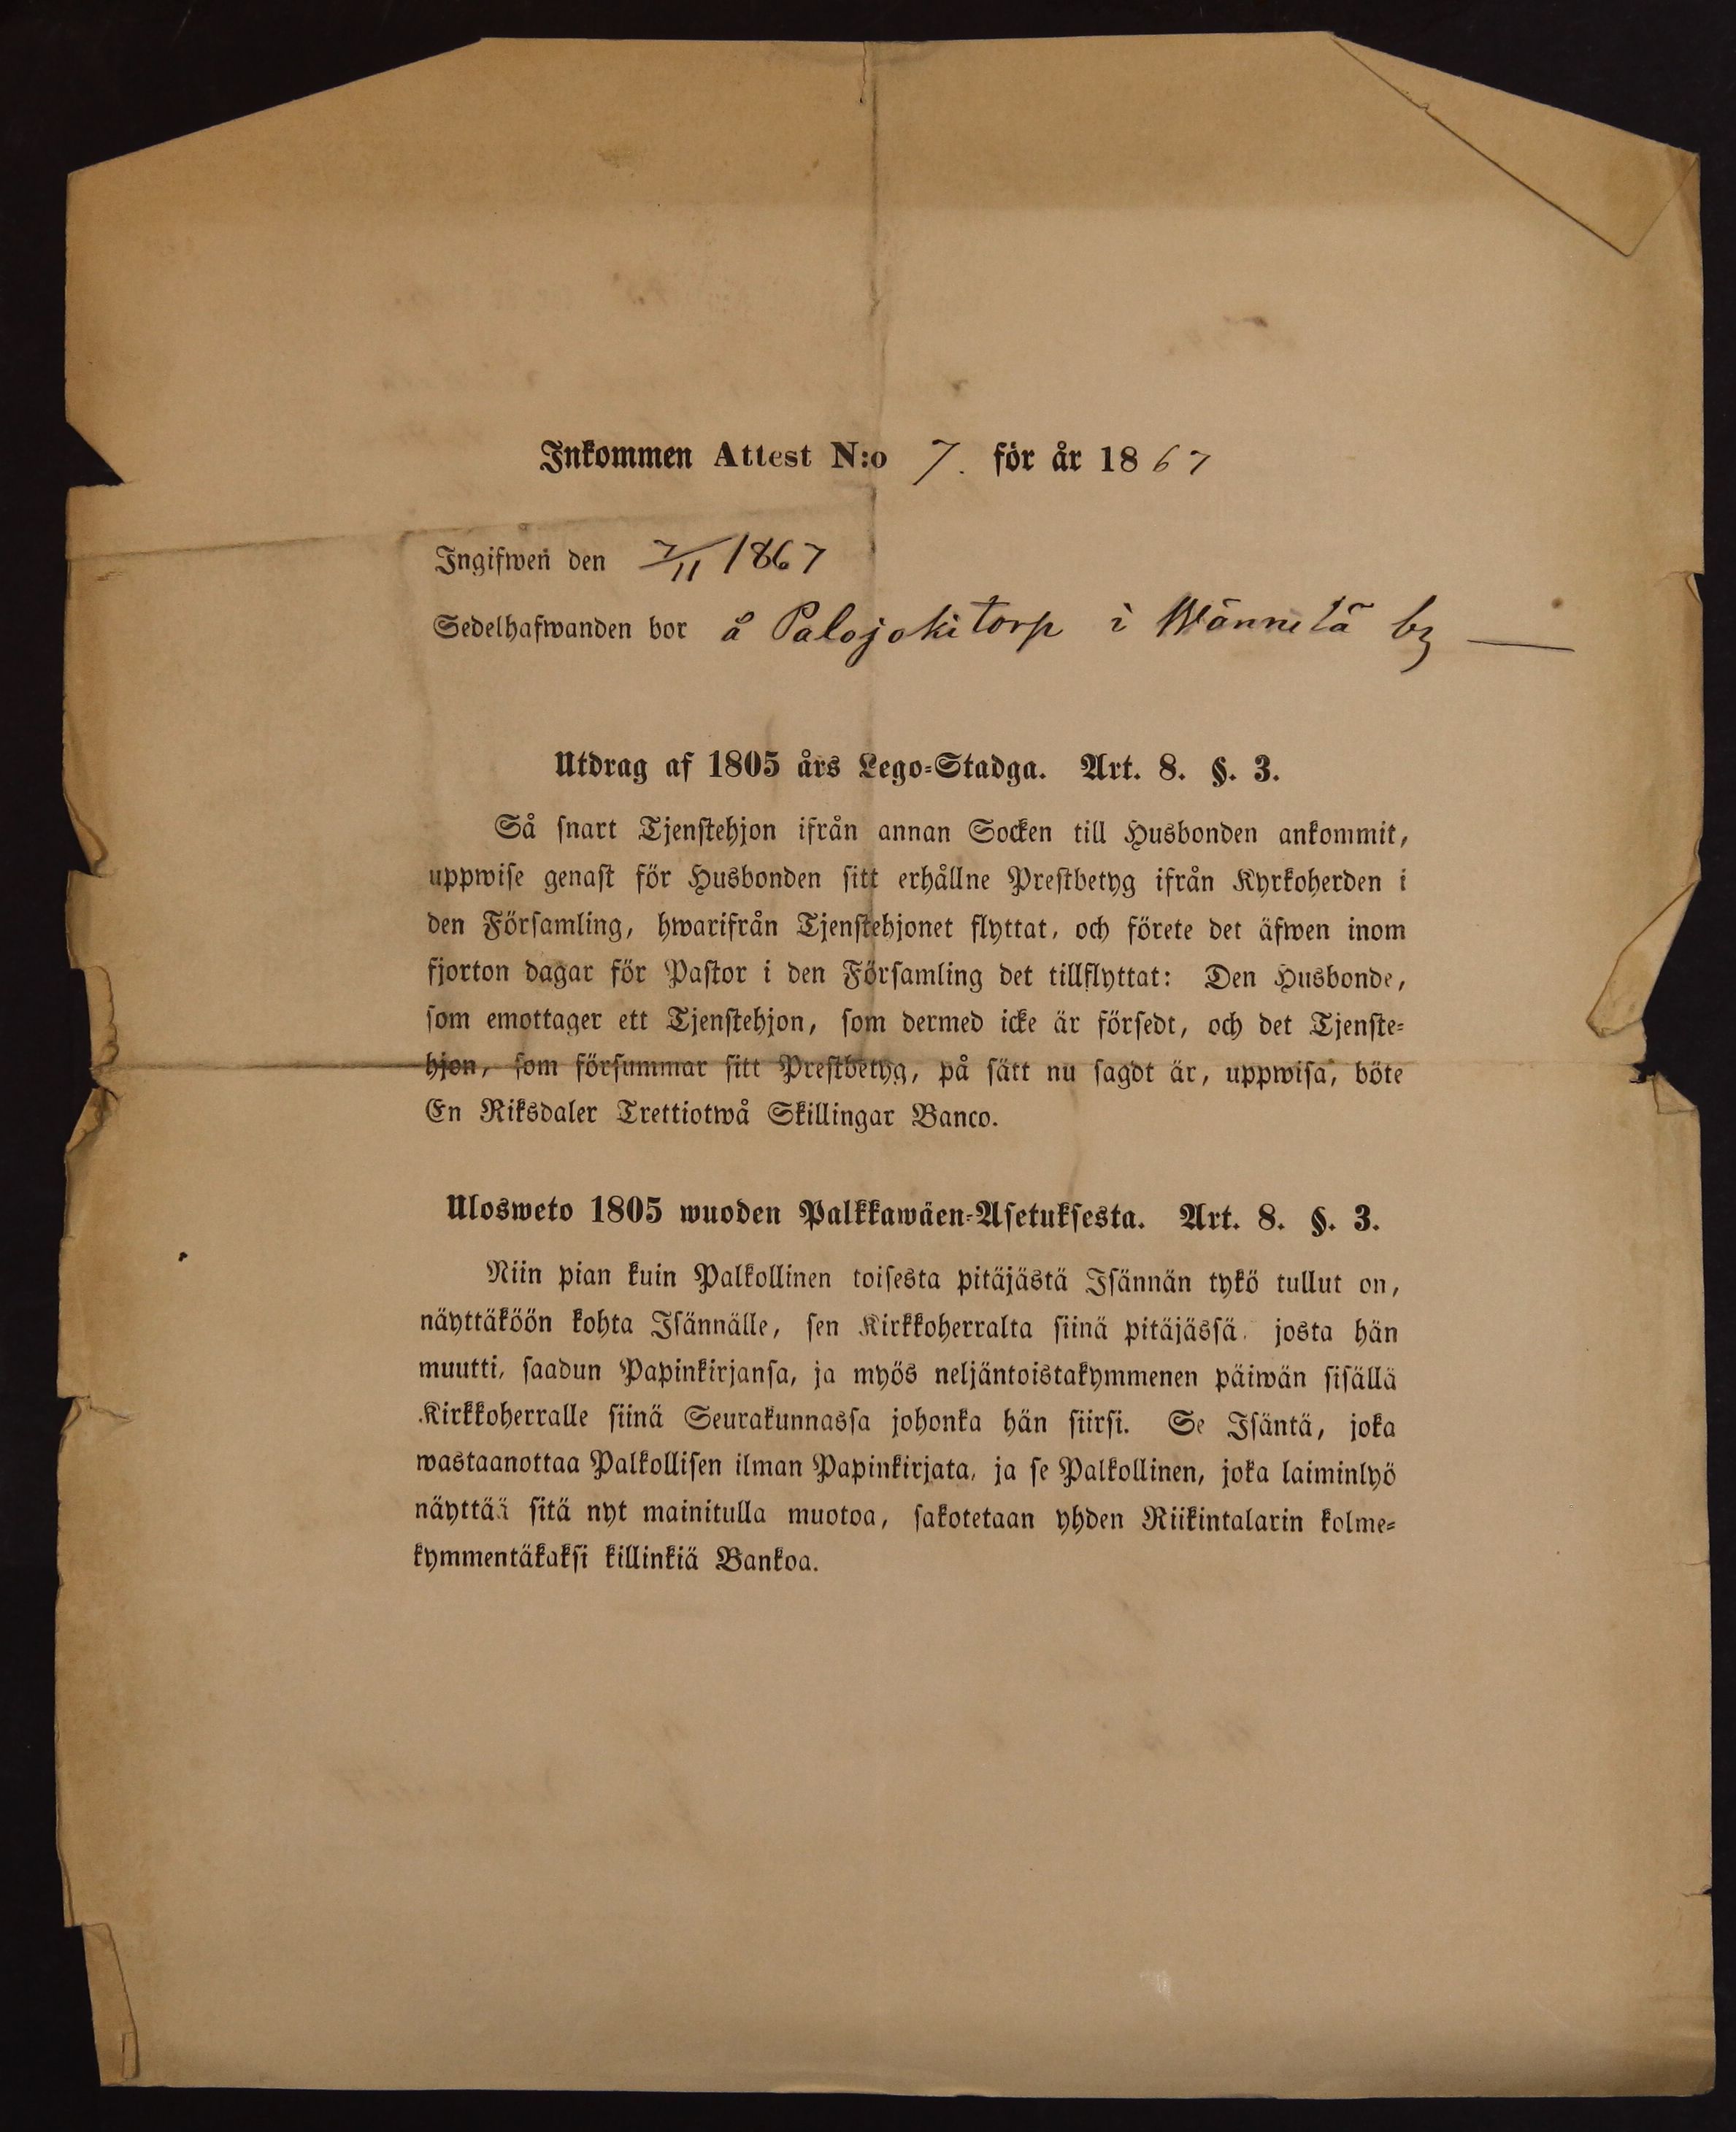 Inkommen Attest N:o 7. för år 1867
Ingifwen den 7/11 1867
Sedelhafwanden bor å Palojoki torp i Wännilä by
Utdrag af 1805 års Lego-Stadga. Art. 8. §. 3.
Så snart Tjenstehjon ifrån annan Socken till Husbonden ankommit,
uppwise genast för Husbonden sitt erhållne Prestbetyg ifrån Kyrkoherden i
den Församling, hwarifrån Tjenstehjonet flyttat, och förete det äfwen inom
fjorton dagar för Pastor i den Församling det tillflyttat: Den Husbonde,
som emottager ett Tjenstehjon, som dermed icke är försedt, och det Tjenste-
hjon, som försummar sitt Prestbetyg, på sätt nu sagdt är, uppwisa, böte
En Riksdaler Trettiotwå Skillingar Banco.
Ulosweto 1805 wuoden Palkkawäen-Asetuksesta. Art. 8. §. 3.
Niin pian kuin Palkollinen toisesta pitäjästä Isännän tykö tullut on,
näyttäköön kohta Isännälle, sen Kirkkoherralta siinä pitäjässä, josta hän
muutti, saadun Papinkirjansa, ja myös neljäntoistakymmenen päiwän sisällä
Kirkkoherralle siinä Seurakunnassa johonka hän siirsi. Se Isäntä, joka
wastaanottaa Palkollisen ilman Papinkirjata, ja se Palkollinen, joka laiminlyö
näyttää sitä nyt mainitulla muotoa, sakotetaan yhden Riikintalarin kolme-
kymmentäkaksi killinkiä Bankoa.